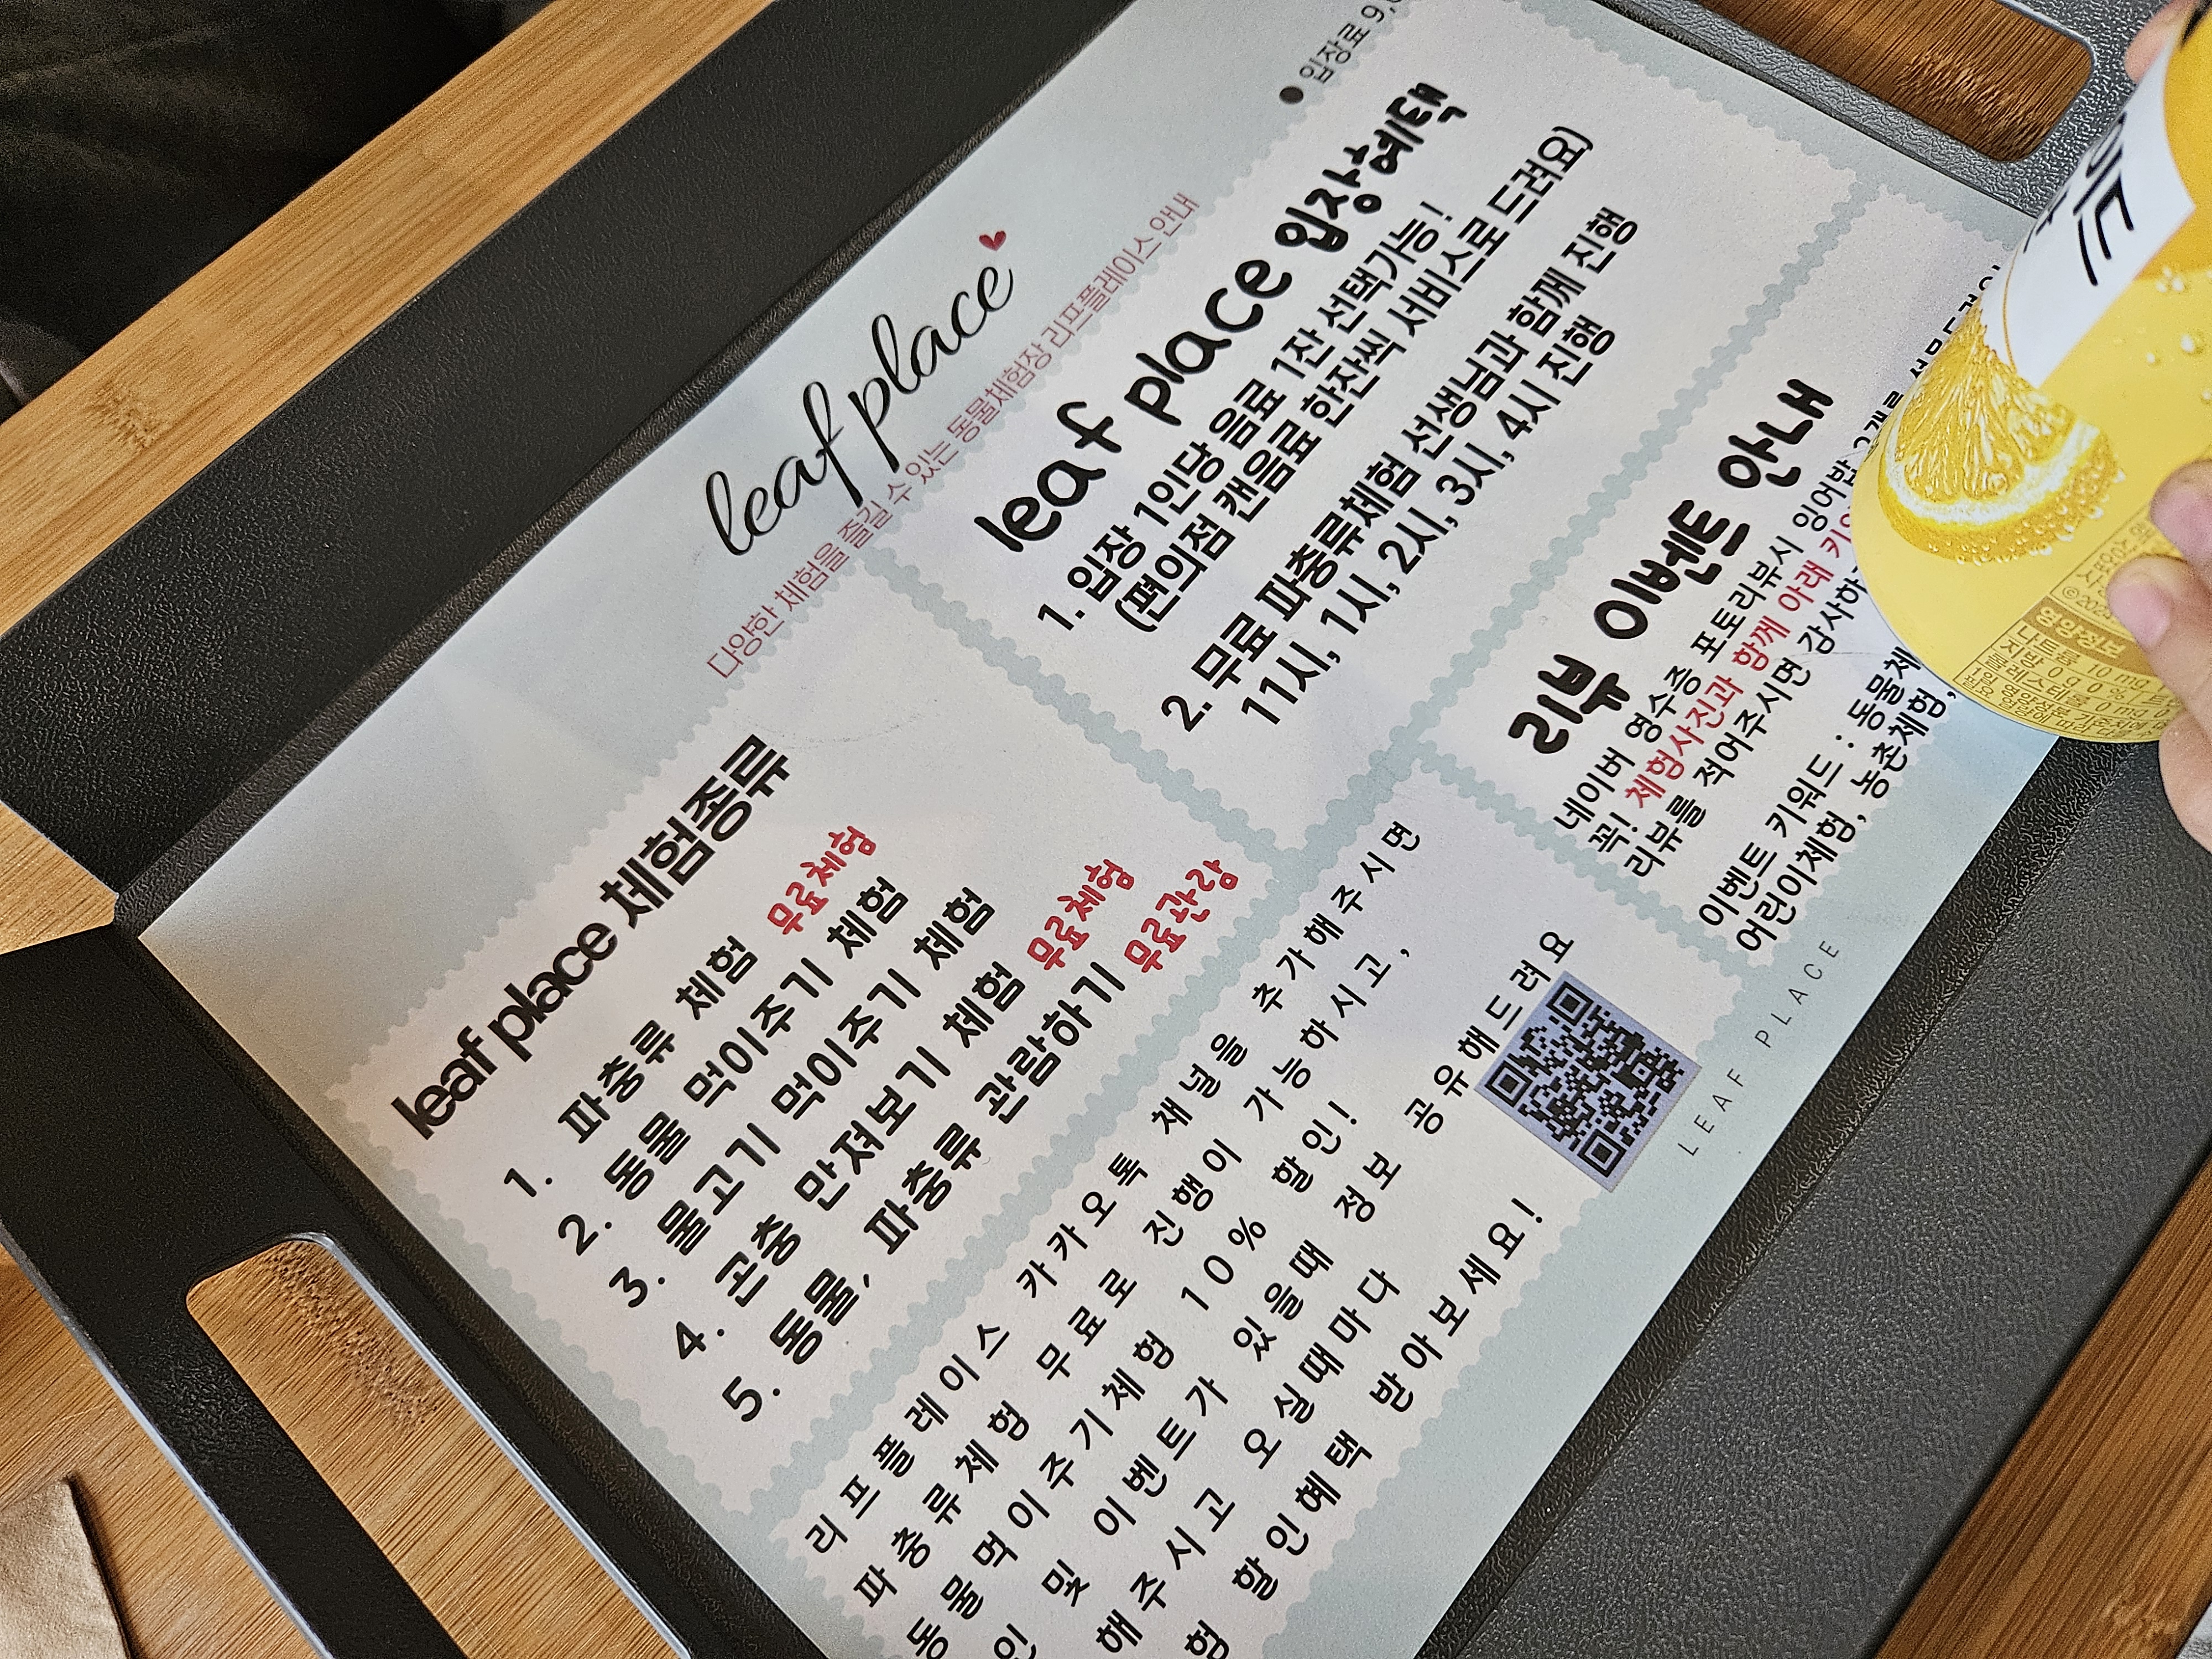 leaf place
다양한 체험을 즐길 수 있는 동물체험장 리프플레이스 안내
leaf place 체험종류
1. 파충류 체험 무료체험
2. 동물 먹이주기 체험
3. 물고기 먹이주기 체험
4. 곤충 만져보기 체험 무료체험
5. 동물, 파충류 관람하기 무료관람
● 입장료
leaf place 입장혜택
1. 입장 1인당 음료 1잔 선택가능!
(편의점 캔음료 한잔씩 서비스로 드려요)
2. 무료 파충류체험 선생님과 함께 진행
11시, 1시, 2시, 3시, 4시 진행
리프플레이스 카카오톡 채널을 추가해주시면
파충류체험 무료로 진행이 가능하시고,
동물먹이주기체험 10% 할인!
및 이벤트가 있을때 정보 공유해드려요
해주시고 오실때마다
할인혜택 받아보세요!
리뷰 이벤트 안내
네이버 영수증 포토리뷰시 잉어밥
꼭! 체험사진과 함께 아래
리뷰를 적어주시면
이벤트 키워드 :
어린이체험, 농촌체험,
LEAF PLACE
영양정보
나트륨 10 mg
지방 0 g 0 %